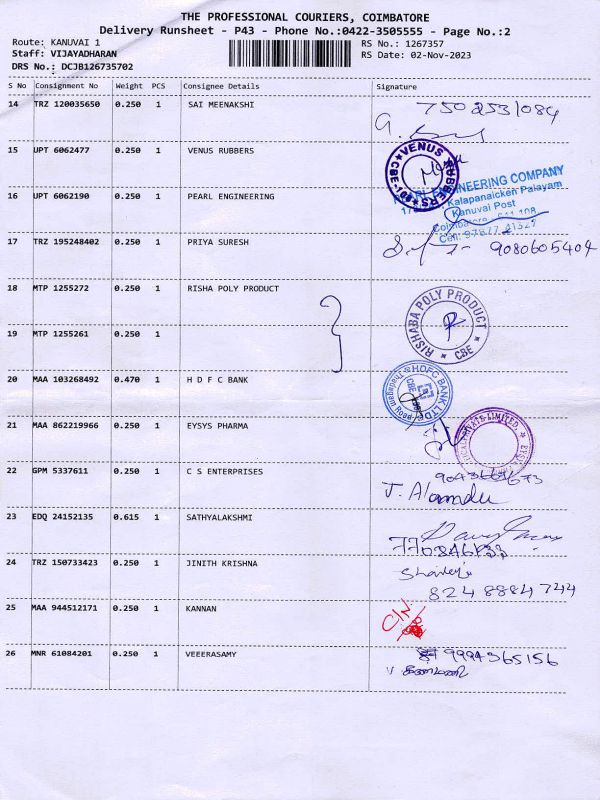 THE PROFESSIONAL COURIERS, COIMBATORE
Delivery Runsheet - P43 - Phone No.:0422-3505555 - Page No.:2
Route: KANUVAI 1 RS No.: 1267357
Staff: VIJAYADHARAN RS Date: 02-Nov-2023
DRS No.: DCJB126735702
S No Consignment No Weight PCS Consignee Details Signature
14 TRZ 120035650 0.250 1 SAI MEENAKSHI
15 UPT 6062477 0.250 1 VENUS RUBBERS VENUS RUBBERS CBE
16 UPT 6062190 0.250 1 PEARL ENGINEERING ENGINEERING COMPANY
Kalapanaicken Palayam
Kanuvai Post
17 TRZ 195248402 0.250 1 PRIYA SURESH 9080605404
18 MTP 1255272 0.250 1 RISHA POLY PRODUCT RISHABA POLY PRODUCT CBE
19 MTP 1255261 0.250 1
20 MAA 103268492 0.470 1 H D F C BANK HDFC BANK LTD
21 MAA 862219966 0.250 1 EYSYS PHARMA
22 GPM 5337611 0.250 1 C S ENTERPRISES
23 EDQ 24152135 0.615 1 SATHYALAKSHMI
24 TRZ 150733423 0.250 1 JINITH KRISHNA
824 8884 744
25 MAA 944512171 0.250 1 KANNAN
26 MNR 61084201 0.250 1 VEEERASAMY 9994365156